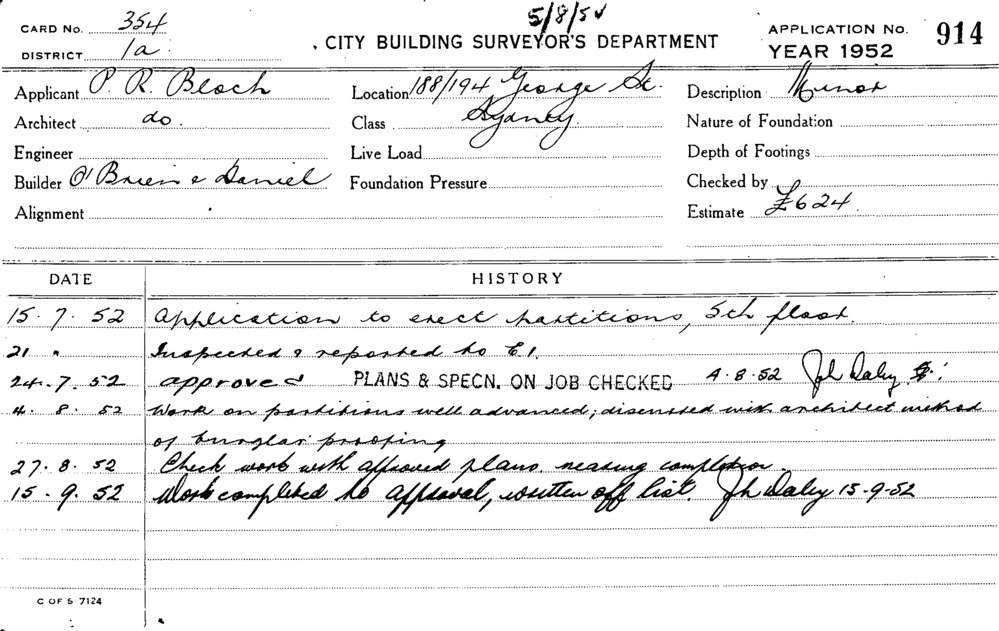 5/8/52
CARD No. 354
DISTRICT 1a.
CITY BUILDING SURVEYOR'S DEPARTMENT
APPLICATION No. 914
YEAR 1952
Applicant P. R. Bloch
Location 188/194 George St.
Description Minor
Architect do.
Class Sydney
Nature of Foundation
Engineer
Live Load
Depth of Footings
Builder O'Brien & Daniel
Foundation Pressure
Checked by
Alignment
Estimate £624.
DATE HISTORY
15. 7. 52 Application to erect partitions, 5th floor.
21 " Inspected & reported to C.I.
24. 7. 52 approved PLANS & SPECN. ON JOB CHECKED 4.8.52 Jh Daley
4. 8. 52 Work on partitions well advanced; discussed with architect method
of burglar proofing
27. 8. 52 Check work with approved plans nearing completion.
15. 9. 52 Work completed to approval, written off list. Jh Daley 15-9-52
C OF S 7124